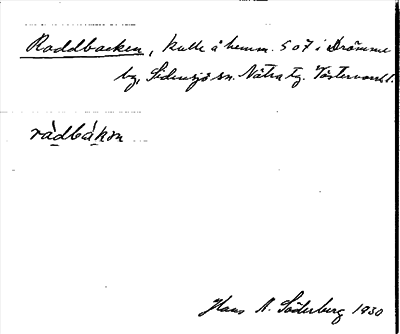 Raddbacken, kulle å hemm. 5 o 7 i Drömme
by, Sidensjö sn. Nätra tg. Västernorrl.
ràdbákɑn
Hans A. Söderberg 1930